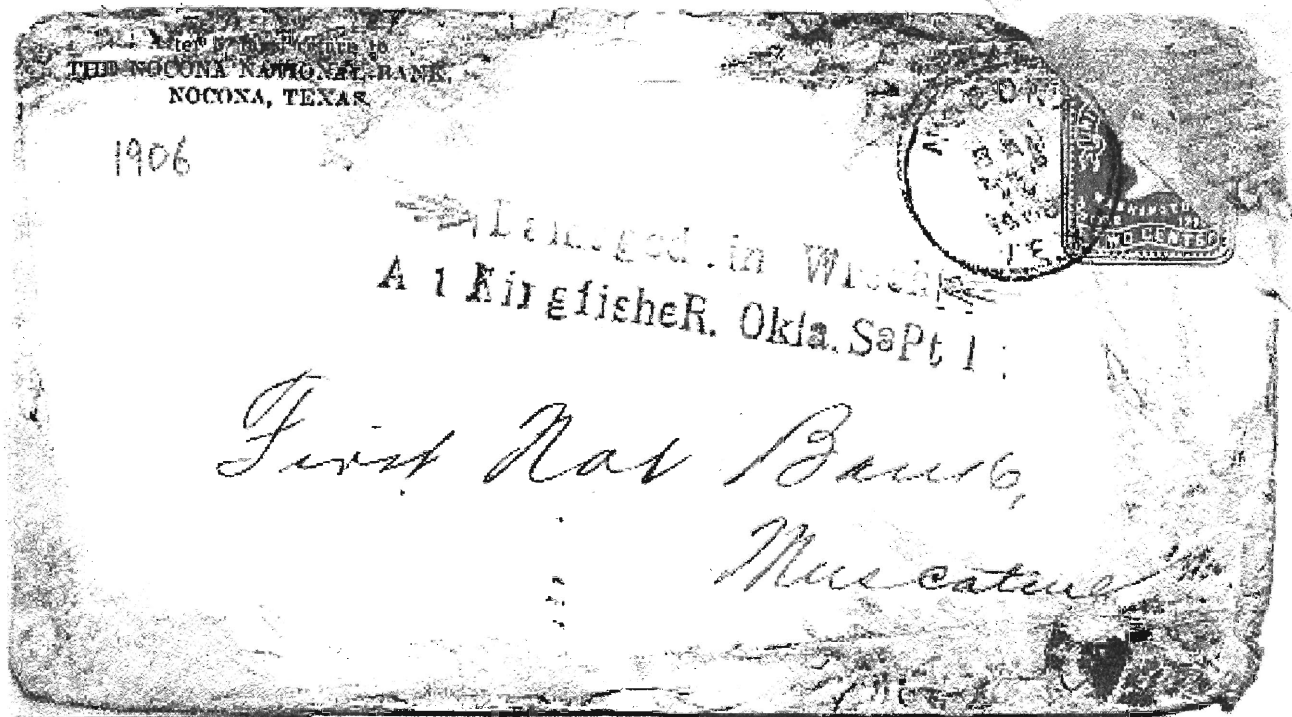 After 5 days return to
THE NOCONA NATIONAL BANK,
NOCONA, TEXAS.
1906
Damaged in Wreck
At KingfisheR. Okla. SaPt 1
TWO CENTS
First Nat Bank,
Muscatine